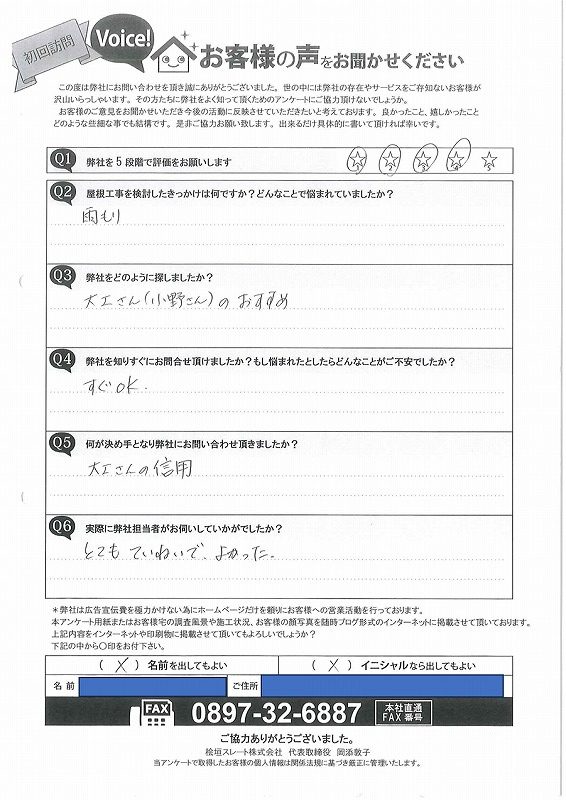 初回訪問
Voice!
お客様の声をお聞かせください
この度は弊社にお問い合わせを頂き誠にありがとうございました。世の中には弊社の存在やサービスをご存知ないお客様が
沢山いらっしゃいます。その方たちに弊社をよく知って頂くためのアンケートにご協力頂けないでしょうか。
お客様のご意見をお聞かせいただき今後の活動に反映させていただきたいと考えております。良かったこと、嬉しかったこと
どのような些細な事でも結構です。是非ご協力お願い致します。出来るだけ具体的に書いて頂ければ幸いです。
Q1 弊社を5段階で評価をお願いします
1 2 3 4 5
Q2 屋根工事を検討したきっかけは何ですか?どんなことで悩まれていましたか?
雨もり
Q3 弊社をどのように探しましたか?
大工さん(小野さん)のおすすめ
Q4 弊社を知りすぐにお問合せ頂けましたか?もし悩まれたとしたらどんなことがご不安でしたか?
すぐOK.
Q5 何が決め手となり弊社にお問い合わせ頂きましたか?
大工さんの信用
Q6 実際に弊社担当者がお伺いしていかがでしたか?
とても ていねいで、よかった。
*弊社は広告宣伝費を極力かけない為にホームページだけを頼りにお客様への営業活動を行っております。
本アンケート用紙またはお客様宅の調査風景や施工状況、お客様の顔写真を随時ブログ形式のインターネットに掲載させて頂いております。
上記内容をインターネットや印刷物に掲載させて頂いてもよろしいでしょうか?
下記の中から〇印をお付下さい。
( × )名前を出してもよい ( × )イニシャルなら出してもよい
名前 ご住所
FAX 0897-32-6887 本社直通 FAX番号
ご協力ありがとうございました。
桧垣スレート株式会社 代表取締役 岡添敦子
当アンケートで取得したお客様の個人情報は関係法規に基づき厳正に管理いたします。